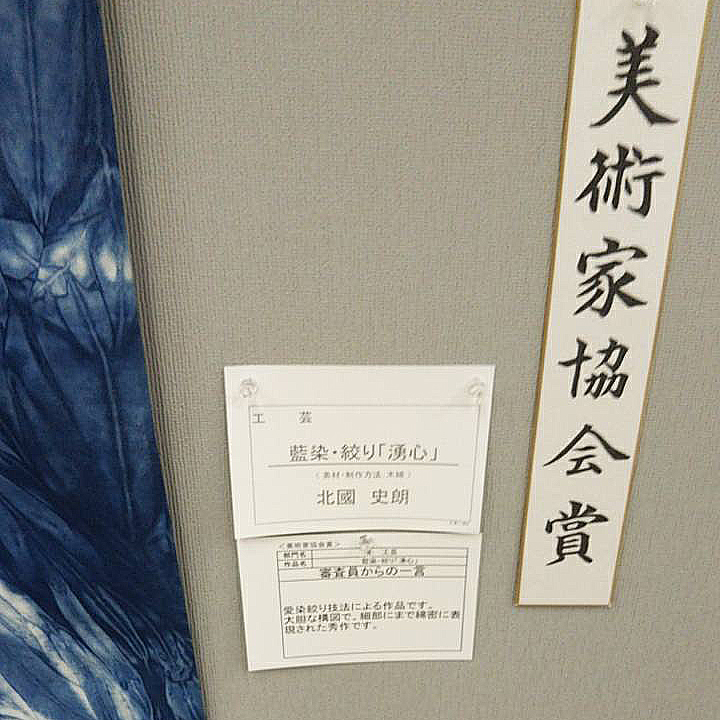 美術家協会賞
工芸
藍染・絞り「湧心」
(素材・制作方法 木綿)
北國 史朗
<美術家協会賞>
部門名 工芸
作品名 藍染・絞り「湧心」
審査員からの一言
愛染絞り技法による作品です。
大胆な構図で、細部にまで綿密に表
現された秀作です。